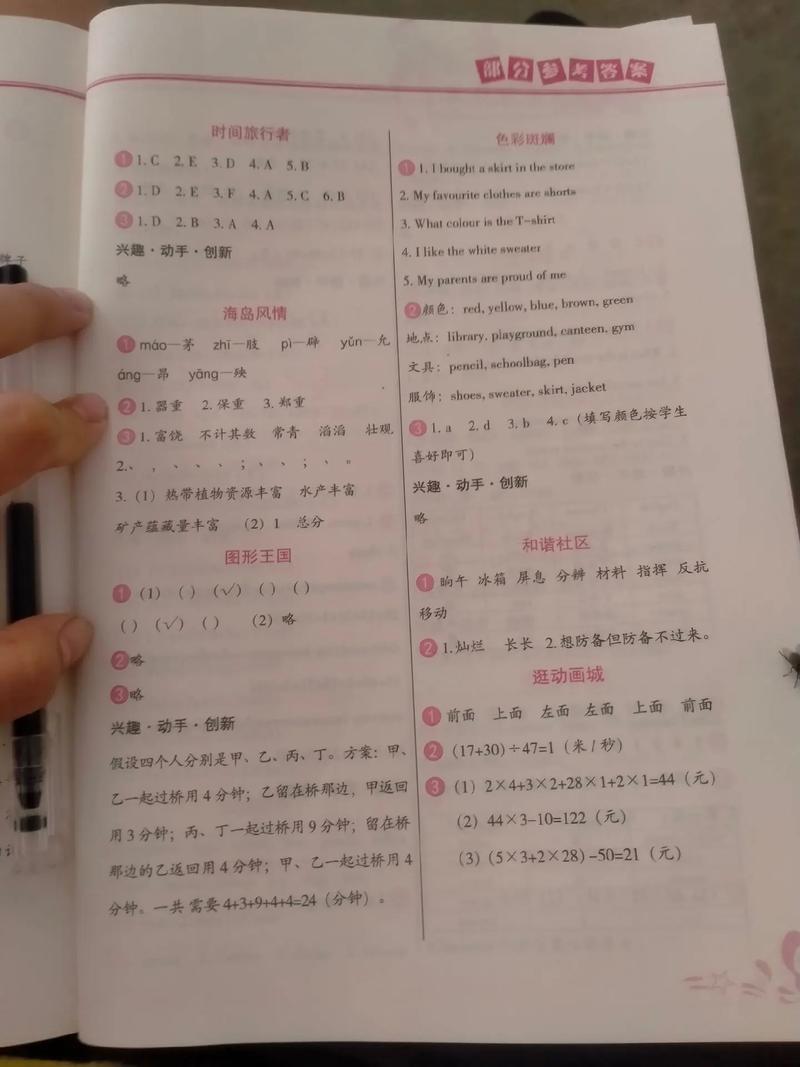 部分参考答案
时间旅行者
1 1. C 2. E 3. D 4. A 5. B
2 1. D 2. E 3. F 4. A 5. C 6. B
3 1. D 2. B 3. A 4. A
兴趣·动手·创新
略
海岛风情
1 máo—茅 zhī—肢 pì—辟 yǔn—允
áng—昂 yāng—殃
2 1. 器重 2. 保重 3. 郑重
3 1. 富饶 不计其数 常青 滔滔 壮观
2.、 , 、 、 、 ; 、 、 ; 、 。
3. (1) 热带植物资源丰富 水产丰富
矿产蕴藏量丰富 (2) 1 总分
图形王国
1 (1) ( ) (√) ( ) ( )
( ) (√) ( ) (2) 略
2 略
3 略
兴趣·动手·创新
假设四个人分别是甲、乙、丙、丁。方案：甲、
乙一起过桥用 4 分钟；乙留在桥那边，甲返回
用 3 分钟；丙、丁一起过桥用 9 分钟；留在桥
那边的乙返回用 4 分钟；甲、乙一起过桥用 4
分钟。一共需要 4+3+9+4+4=24（分钟）。
色彩斑斓
1 1. I bought a skirt in the store
2. My favourite clothes are shorts
3. What colour is the T-shirt
4. I like the white sweater
5. My parents are proud of me
2 颜色：red, yellow, blue, brown, green
地点：library, playground, canteen, gym
文具：pencil, schoolbag, pen
服饰：shoes, sweater, skirt, jacket
3 1. a 2. d 3. b 4. c（填写颜色按学生
喜好即可）
兴趣·动手·创新
略
和谐社区
1 晌午 冰箱 屏息 分辨 材料 指挥 反抗
移动
2 1.灿烂 长长 2. 想防备但防备不过来。
逛动画城
1 前面 上面 左面 左面 上面 前面
2 (17+30)÷47=1（米/秒）
3 (1) 2×4+3×2+28×1+2×1=44（元）
(2) 44×3-10=122（元）
(3) (5×3+2×28)-50=21（元）